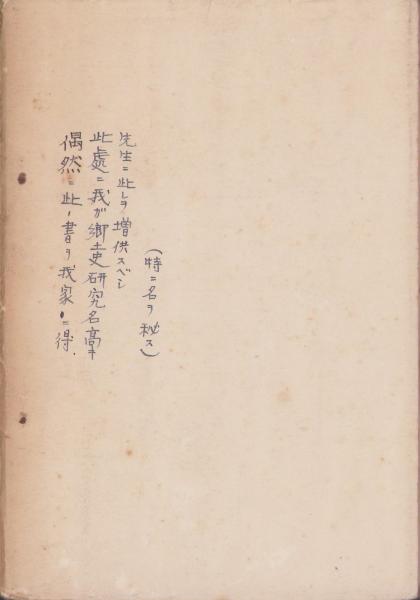 偶然ニ此ノ書ヲ我家ニ得.
此處ニ我ガ郷土史研究名高キ
先生ニ此レヲ増供スベシ
(特ニ名ヲ秘ス)